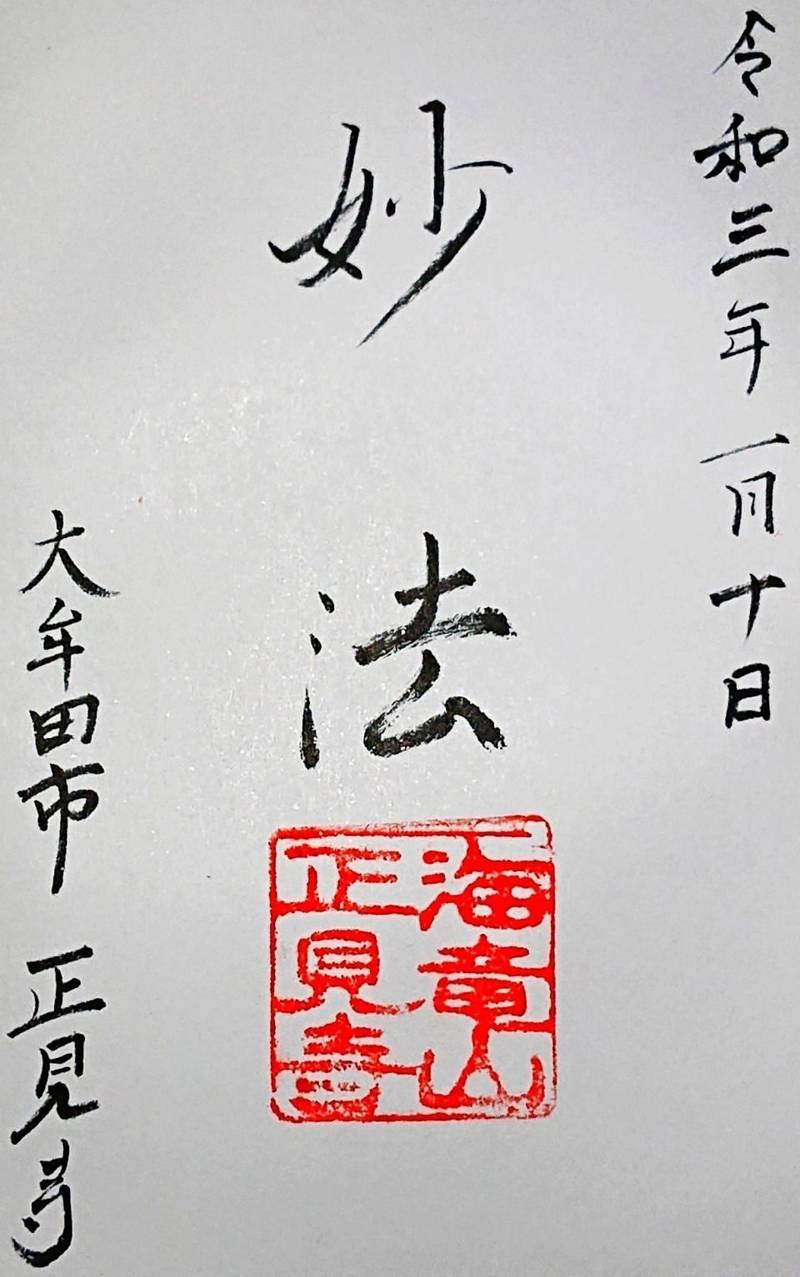 令和三年一月十日
妙法
海竜山
正見寺
大牟田市 正見寺